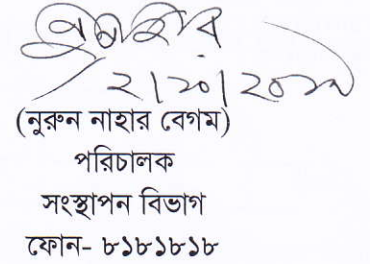 ২।১০।২০১৯
(নুরুন নাহার বেগম)
পরিচালক
সংস্থাপন বিভাগ
ফোন- ৮১৮১৮১৮